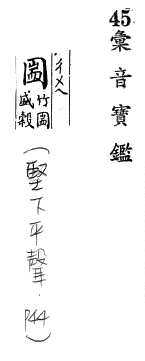 45彙音寶鑑
ㄔㄨㄟ
圌
竹圌
盛穀
(堅下平聲．P44)